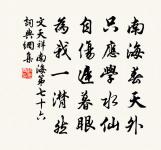 南海春天外
只應學水仙
自傷遲暮眼
為我一潸然
文天祥南海第七十六
詞典網集